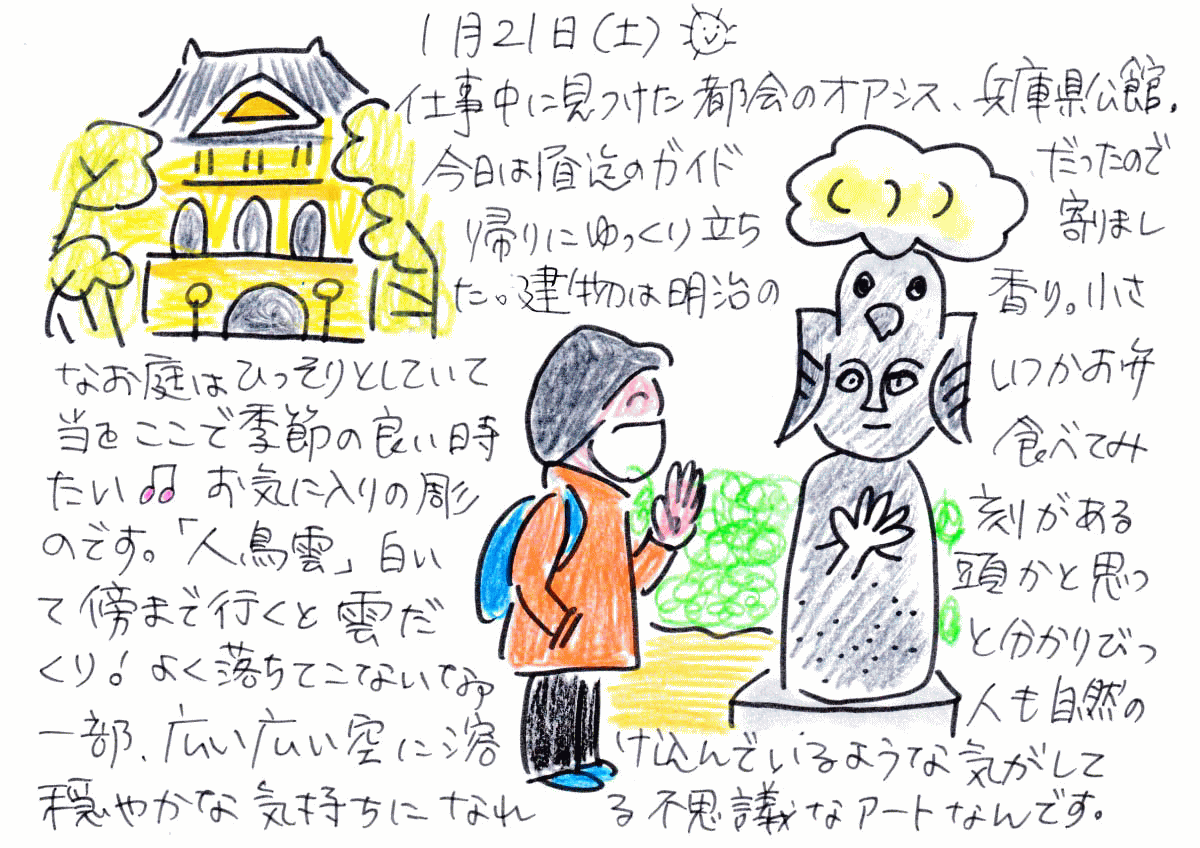 1月21日(土)
仕事中に見つけた都会のオアシス、兵庫県公館。
今日は直近のガイドだったので
帰りにゆっくり立ち寄りまし
た。建物は明治の香り。小さ
なお庭はひっそりとしていていつかお弁
当をここで季節の良い時食べてみ
たい♫ お気に入りの彫刻がある
のです。「人鳥雲」白い頭かと思っ
て傍まで行くと雲だと分かりびっ
くり！よく落ちてこないなぁ 人も自然の
一部、広い広い空に溶け込んでいるような気がして
穏やかな気持ちになれる不思議なアートなんです。